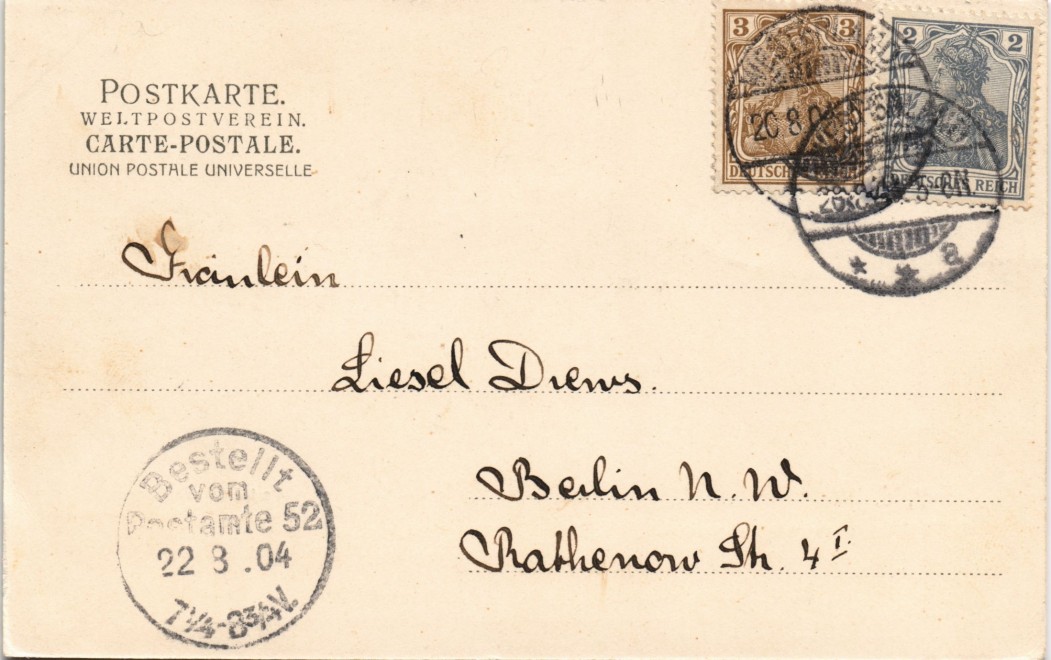 POSTKARTE.
WELTPOSTVEREIN.
CARTE-POSTALE.
UNION POSTALE UNIVERSELLE
3 3
DEUTSCHES REICH
2 2
DEUTSCHES REICH
20 8 04
5-6N.
a
Fräulein
Liesel Drews.
Berlin N. W.
Rathenow Str. 4 I.
Bestellt
vom
Postamte 52
22 8 .04
7¼-8¾V.